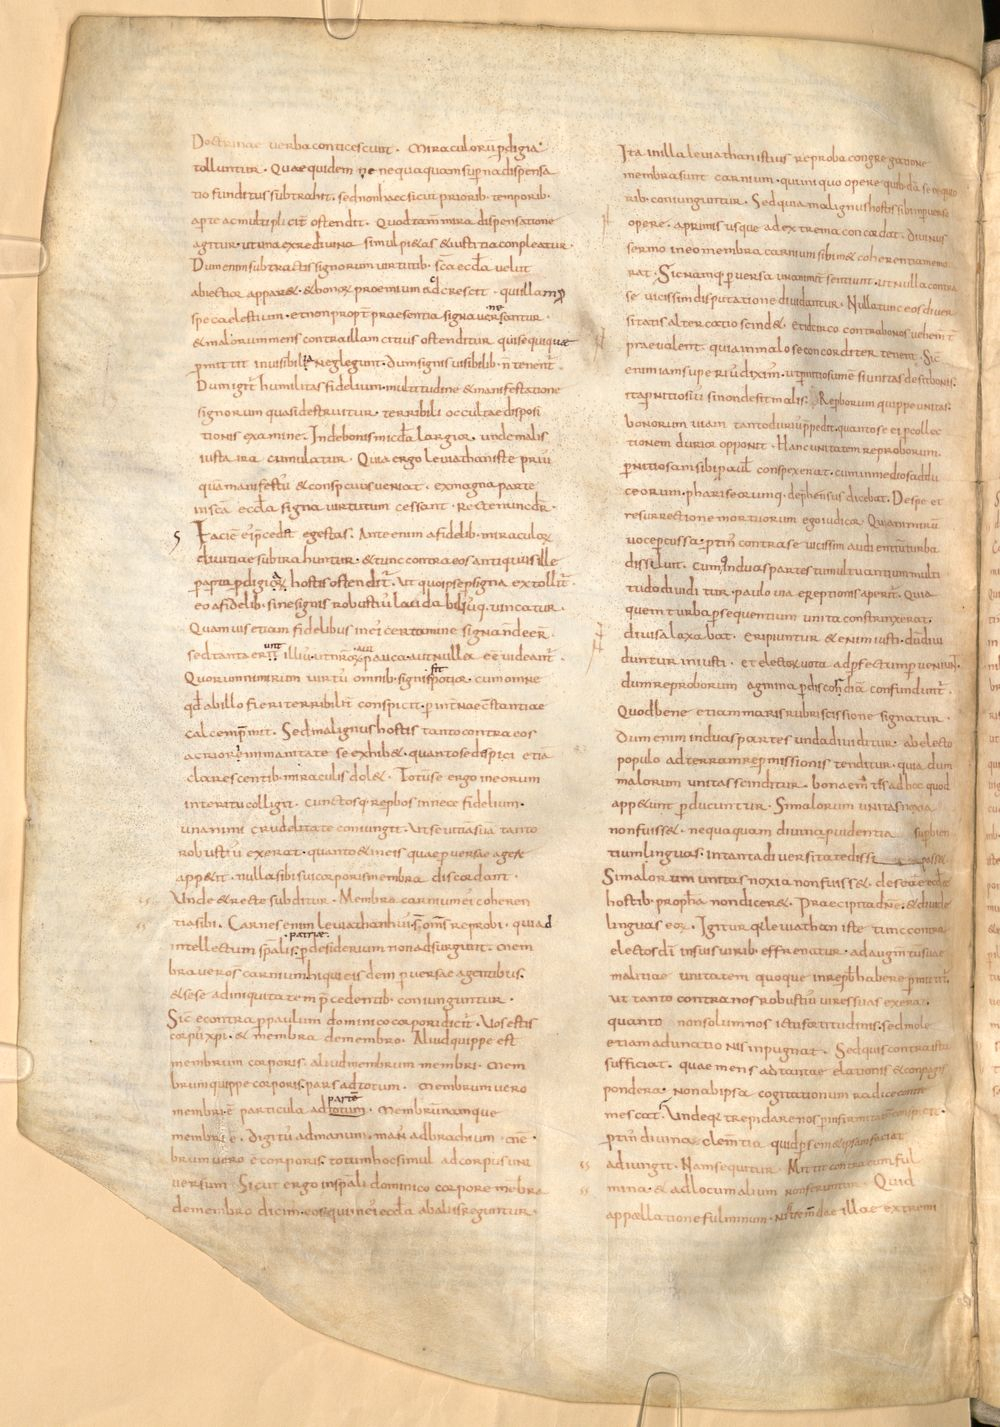 Doctrinae verba conticescunt. Miraculorū prodigia
tolluntur. Quae quidem ne nequaquam superna dispensa
tio funditus subtrahit. sed non haec sicut priorib. temporib.
aperte ac multipliciter ostendit. Quod tam mira dispensatione
agitur. ut una ex re divina simul pietas & iustitia conpleatur.
Dum enim subtractis signorum virtutib. sc̄a eccl̄a velut
abiectior appar&. & bonorū proemium adcrescit. qui illam
spe caelestium. et non propt̄ praesentia signa venerantur.
& malorum mens contra illam citius ostenditur. qui sequi quae
ꝑmittit invisibilia neglegunt. Dum signis visibilib. n̄ tenent̄.
Dum igit̄ humilitas fidelium. multitudine & manifestatione
signorum quasi destruitur. terribili occultae disposi
tionis examine. Inde bonis mic̄dia largior. unde malis
iusta ira cumulatur. Quia ergo leviathan iste priu
quā manifestus & conspicuus veniat. ex magna parte
in sc̄a eccl̄a signa virtutum cessant. Recte nunc dr̄.
Faciē ei p̄cedit egestas. Ante enim a fidelib. miraculorū
divitiae subtrahuntur. & tunc contra eos antiquus ille
hostis ostendit̄. Ut quo ipse ꝑ signa extollit̄.
eo a fidelib. sine signis robustiu laudabiliusq. vincatur.
Quamvis etiam fidelibus in ei certamine signa n̄ deer̄.
sed tanta erunt illiu. ut nr̄orū pauca aut nulla ē e videant̄.
Quorum nimirum virtu omnib. signis fit potior. cum omne
qd̄ ab illo fieri terribilit̄ conspicit. ꝑ int̄nae cōstantiae
calce ꝑmit. Sed malignus hostis tanto contra eos
acriore inmanitate se exhib&. quanto se despici etiā
clarescentib. miraculis dol&. Totum se ergo in eorum
interitu colligit. cunctosq. rep̄bos in nece fidelium.
unanimi crudelitate coniungit. Ut se vitia sua tanto
robustiu exerat. quanto & in eis quae perversae agere
app&it. nulla sibi sui corporis membra discordant.
Unde & recte subditur. Membra carniumei coheren
tia sibi. Carnes enim leviathan huiꝰ st̄ om̄s reprobi. quia d
intellectum spalis patriae. ꝑ desiderium non adsurgunt. Mem
bra vero s̄ carnium hi qui eisdem ꝑverse agentibus.
& sese ad iniquitatem p̄cedentib. coniunguntur.
Sic̄ econtra ꝑ paulum dominico corpori dicit̄. Vos estis
corpus xp̄i. & membra de membro. Aliud quippe est
membrum corporis. aliud membrum membri. Mem
brum quippe corporis. pars ad totum. Membrum vero
membri. ē particula ad partē totum. Membrum namque
membri ē. digitū ad manum. man̄ ad brachium. Mē
brum vero ē corporis. totum hoc simul ad corpus uni
versum. Sicut ergo in sp̄ali dominico corpore mēbra
de membro dicim̄. eos qui in ei eccl̄a ab aliis reguntur.
Ita in illa leviathan istius reproba congregatione
membra sunt carnium. qui iniquo opere quibusdā se nequio
rib. coniunguntur. Sed quia malignus hostis sibi in perverso
opere. a primis usque ad extrema concordat. divinus
sermo in eo membra carnium sibim& coherentia memo
rat. Sic namq̄ perversa unanimit̄ sentiunt. ut nulla contra
se vicissim disputatione dividantur. Nulla tunc eos diver
sitatis altercatio scind&. et idcirco contra bonos vehem̄t̄
praevalent. quia in malo se concorditer tenent. Sic̄
enim iam superiu diximꝰ. ut ꝑnitiosum ē si unitas desit bonis.
ita ꝑnitiosiu si non desit malis. Reproborum quippe unitas.
bonorum viam tanto duriu p̄pedit. quanto se ei ꝑ collec
tionem durior opponit. Hanc unitatem reproborum
ꝑnitiosam sibi paul̄ conspexerat. cum in medio sadducu
ceorum. phariseorumq̄. dephensus dicebat. De spe et
resurrectione mortuorum ego iudicor. Qua nimirū
voce percussa. ꝓtin̄ contra se vicissim audientiū turba
dissiluit. Cumq̄ in duas partes tumultuantium multi
tudo dividitur. paulo via ereptionis aperit̄. Quia
quem turba persequentium unita constrinxerat.
divisa laxabat. Eripiuntur & enim iusti. dum divi
duntur iniusti. et electorū vota ad perfectum perveniunt.
dum reproborum agmina ꝑ discordiā confundunt̄.
Quod bene etiam maris rubri scissione signatur.
Dum enim in duas partes unda dividitur. ab electo
populo ad terram repromissionis tenditur. quia dum
malorum unitas scinditur. bonae m̄tes ad hoc quod
app&unt perducuntur. Si malorum unitas noxia
non fuiss&. nequaquam divina ꝓvidentia superbien
tium linguas. in tanta diversitate dissi
Si malorum unitas noxia non fuiss&. de scāe eccl̄ae
hostib. proph̄a non dicer&. Praecipita dn̄e. & divide
linguas eorū. Igitur quia leviathan iste tunc contra
electos dī in suis virib. effrenatur. ad augm̄tum suae
malitiae unitatem quoque in rep̄b̄ habere permittit̄.
Ut tanto contra nos robustiu vires suas exerat.
quanto non solum nos ictu fortitudinis. sed mole
etiam adunationis inpugnat. Sed quis contra ista
sufficiat. quae mens ad tantae elationis & conpagis
pondera. non ab ipsa cogitationum radice contre
mescat. Unde q̄ trepidare nos ꝑ infirmitatem conspicit.
ꝓtin̄ divina clem̄tia quid ꝑ semetipsam faciat
adiungit. Nam sequitur. Mittit contra eum ful
mina. & ad locum alium non feruntur. Quid
appellatione fulminum. nisi trem̄dae illae extremi